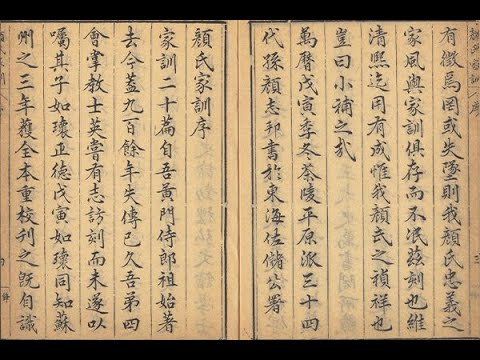 有徵焉罔或失墜則我顏氏忠義之
家風與家訓俱存而不泯茲刻也維
清熙迄用有成惟我顏氏之禎祥也
豈曰小補之哉
萬曆戊寅季冬茶陵平原派三十四
代孫顏志邦書於東海佐儲公署
顏氏家訓序
家訓二十篇自吾黃門侍郎祖始著
去今蓋九百餘年失傳已久吾弟四
會掌教士英嘗有志訪刻而未遂以
囑其子如瓌正德戊寅如瓌同知蘇
州之三年獲全本重校刊之既自識